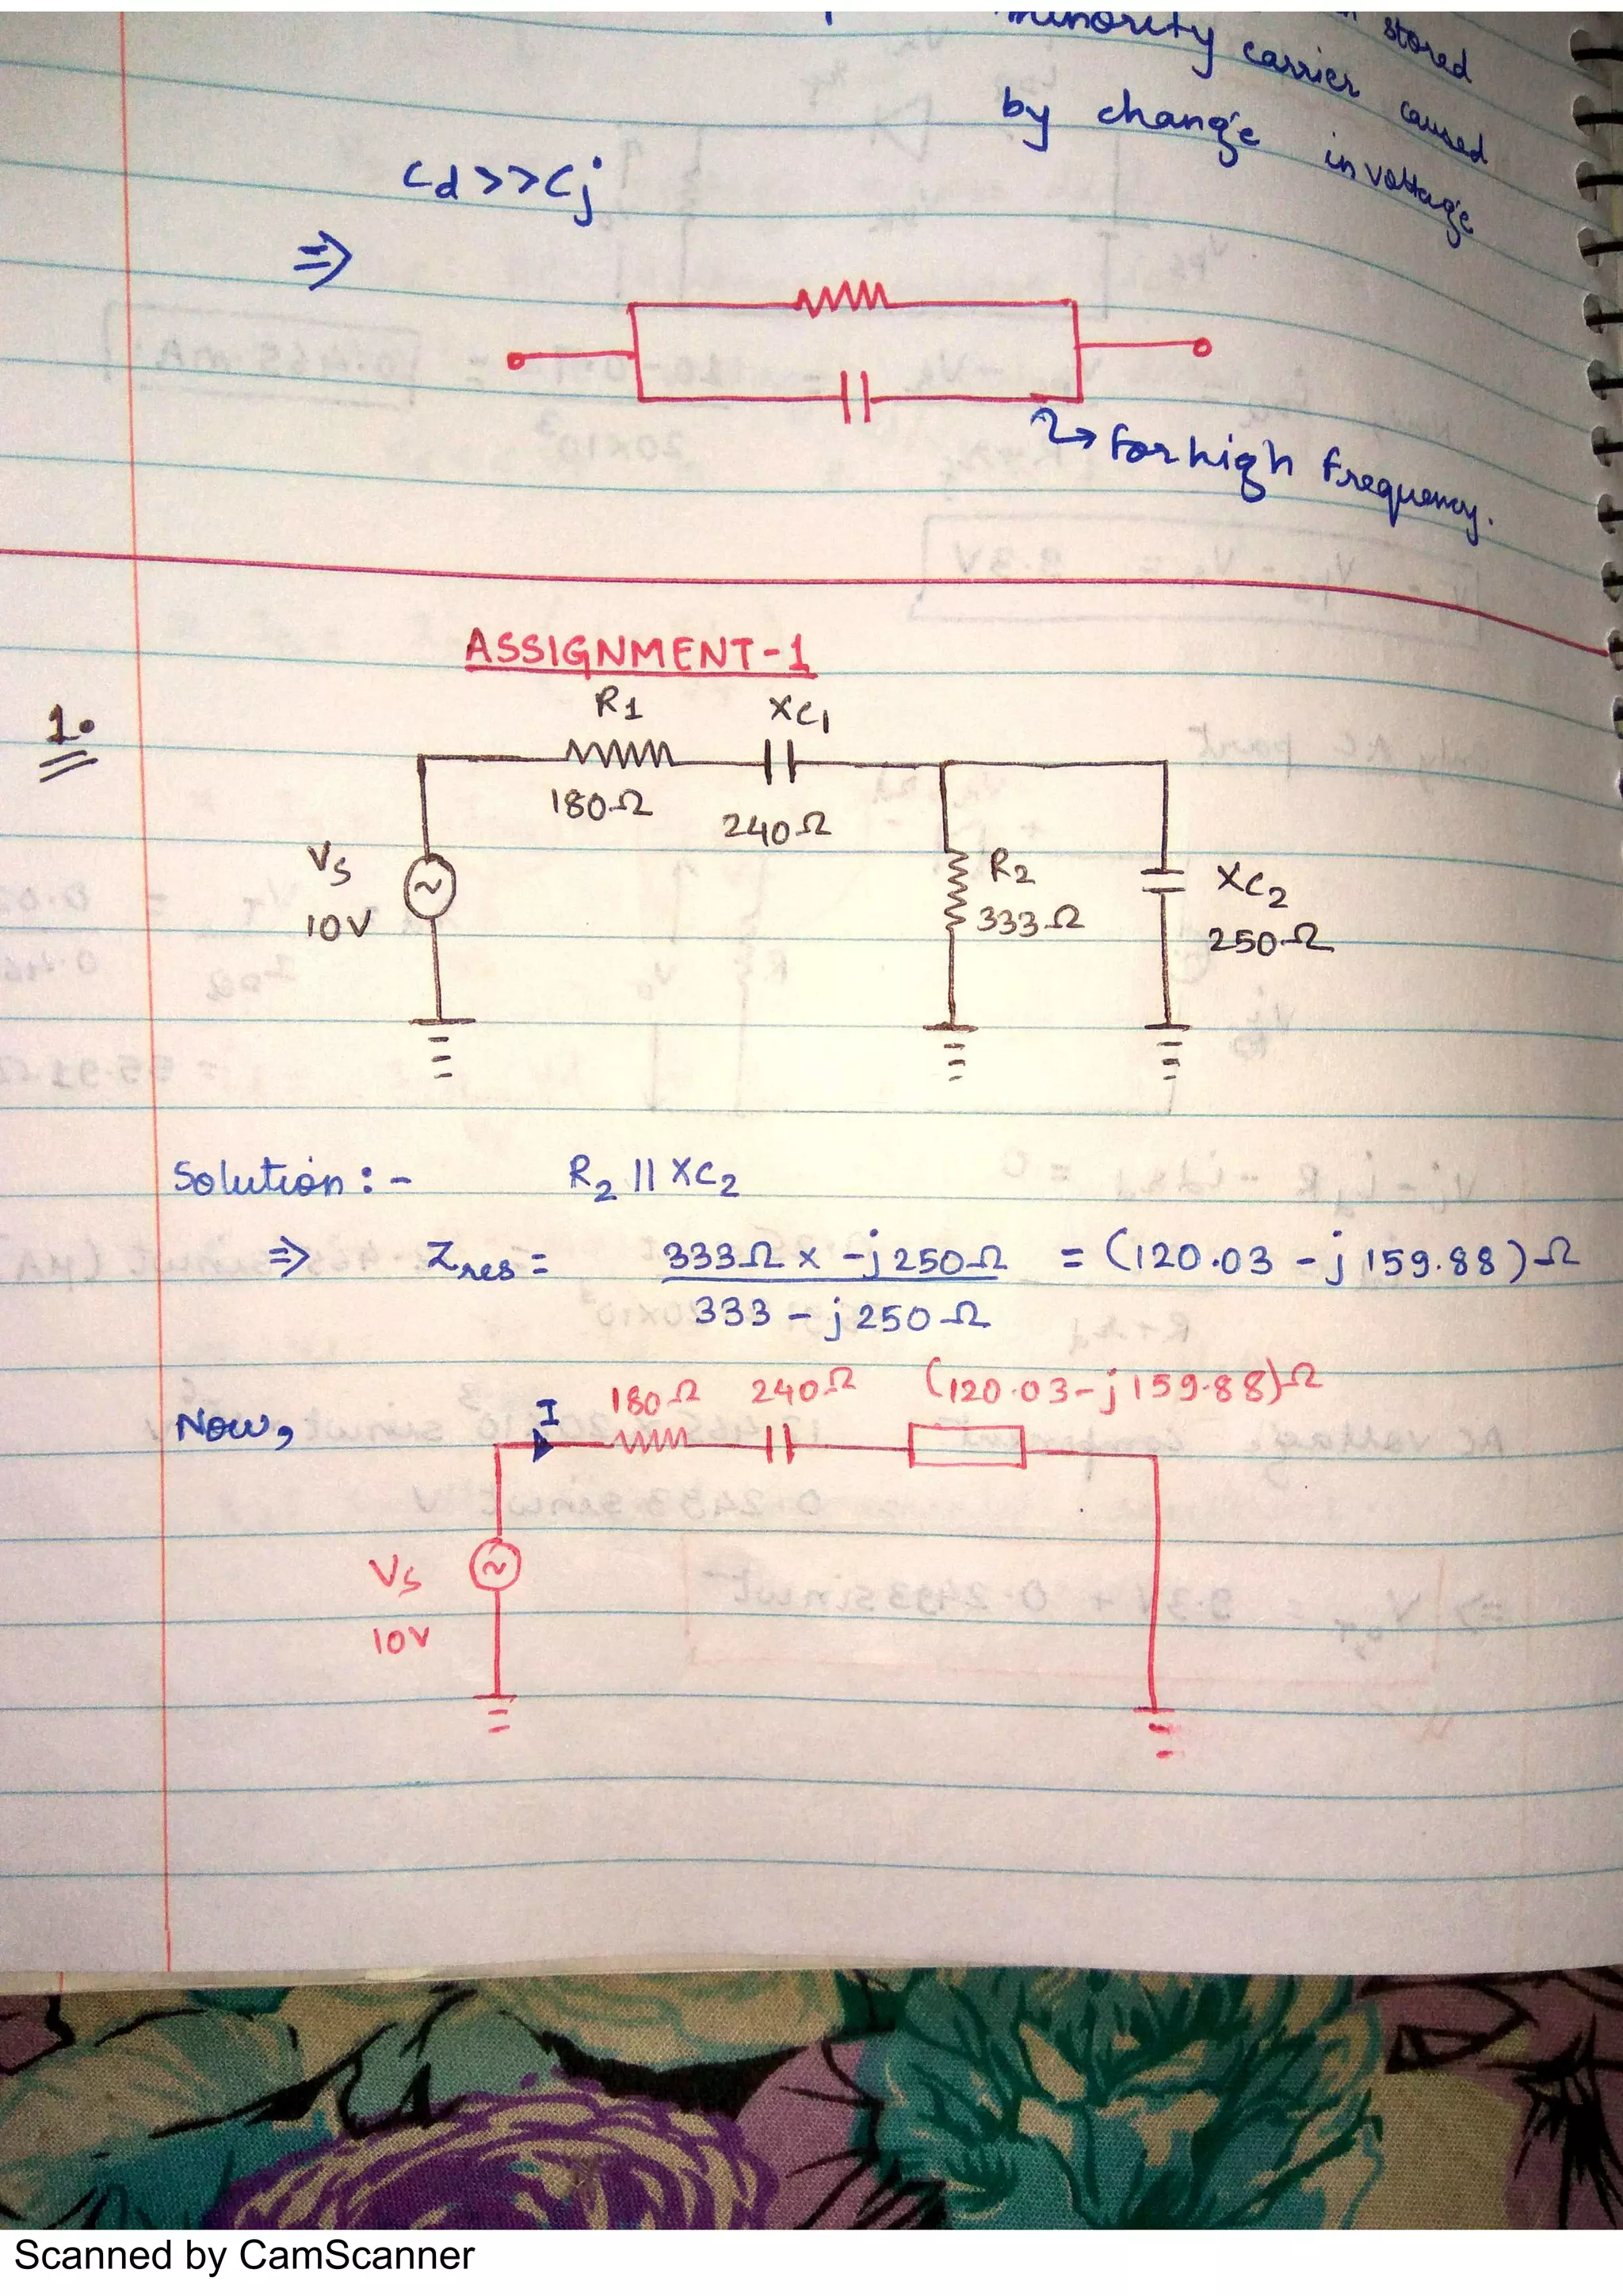 minority carrier stored
by change caused
in voltage
Cd>>Cj
⇒
→ For high Frequency.
ASSIGNMENT-1
1.
R1 XC1
180Ω 240Ω
Vs
10V
R2
333Ω
XC2
250Ω
Solution :- R2 || XC2
⇒ Zres = 333Ω x -j250Ω = (120.03 - j159.88)Ω
333 - j250Ω
Now, I 180Ω 240Ω (120.03-j159.88)Ω
Vs
10V
Scanned by CamScanner